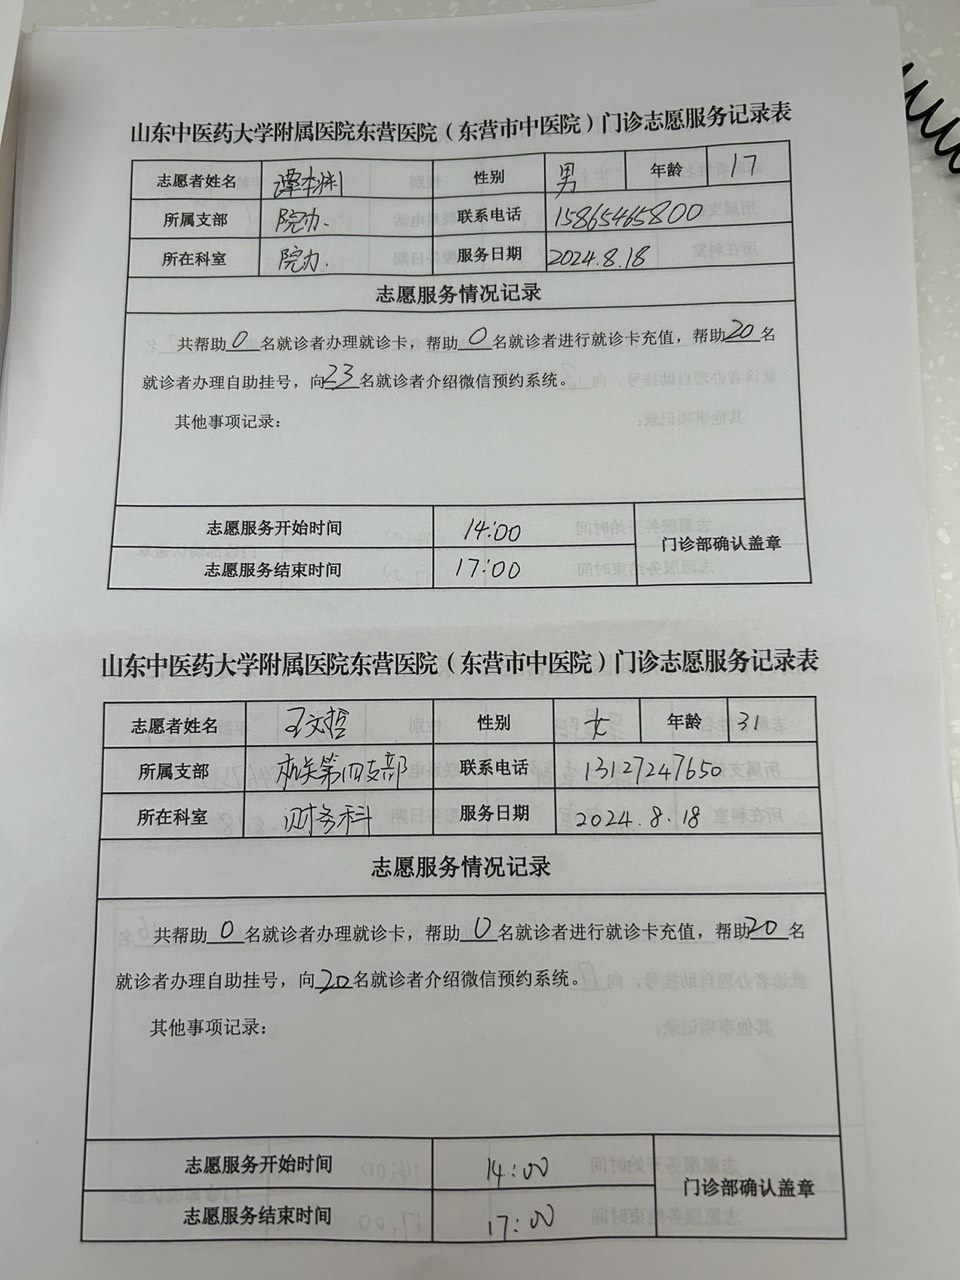 山东中医药大学附属医院东营医院（东营市中医院）门诊志愿服务记录表
志愿者姓名 谭本渊 性别 男 年龄 17
所属支部 院办. 联系电话 15865465800
所在科室 院办. 服务日期 2024.8.18
志愿服务情况记录
共帮助0名就诊者办理就诊卡，帮助0名就诊者进行就诊卡充值，帮助20名
就诊者办理自助挂号，向23名就诊者介绍微信预约系统。
其他事项记录：
志愿服务开始时间 14:00 门诊部确认盖章
志愿服务结束时间 17:00
山东中医药大学附属医院东营医院（东营市中医院）门诊志愿服务记录表
志愿者姓名 王文哲 性别 女 年龄 31
所属支部 机关第四支部 联系电话 13127247650
所在科室 财务科 服务日期 2024.8.18
志愿服务情况记录
共帮助0名就诊者办理就诊卡，帮助0名就诊者进行就诊卡充值，帮助20名
就诊者办理自助挂号，向20名就诊者介绍微信预约系统。
其他事项记录：
志愿服务开始时间 14:00 门诊部确认盖章
志愿服务结束时间 17:00